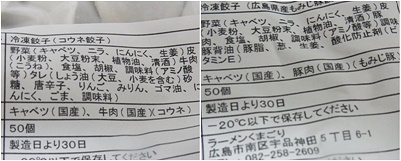 冷凍餃子(コウネ餃子)
野菜(キャベツ、ニラ、にんにく、生姜)皮
(小麦粉、大豆粉末、植物油、清酒)豚
肉(こうね)、食塩、胡椒、調味料(アミノ酸
等)タレ(しょうゆ(大豆、小麦を含む)砂
糖、唐辛子、りんご、みりん、ゴマ油、に
んにく、ごま、調味料)
キャベツ(国産)、牛肉(国産)(コウネ)
50個
製造日より30日
-20℃以下で保存してください
冷凍餃子(広島県産もみじ豚
野菜(キャベツ、ニラ、にんにく、生姜)皮
(小麦粉、大豆粉末、植物油、清酒)豚
肉、食塩、胡椒、調味料(アミノ酸等)
豚背油(豚脂、葱、生姜、酸化防止剤(ビ
タミンE)
キャベツ(国産)、豚肉(国産)(もみじ豚)
50個
製造日より30日
-20℃以下で保存してください
ラーメンくまごり
広島市南区宇品神田5丁目6-1
082-258-2609